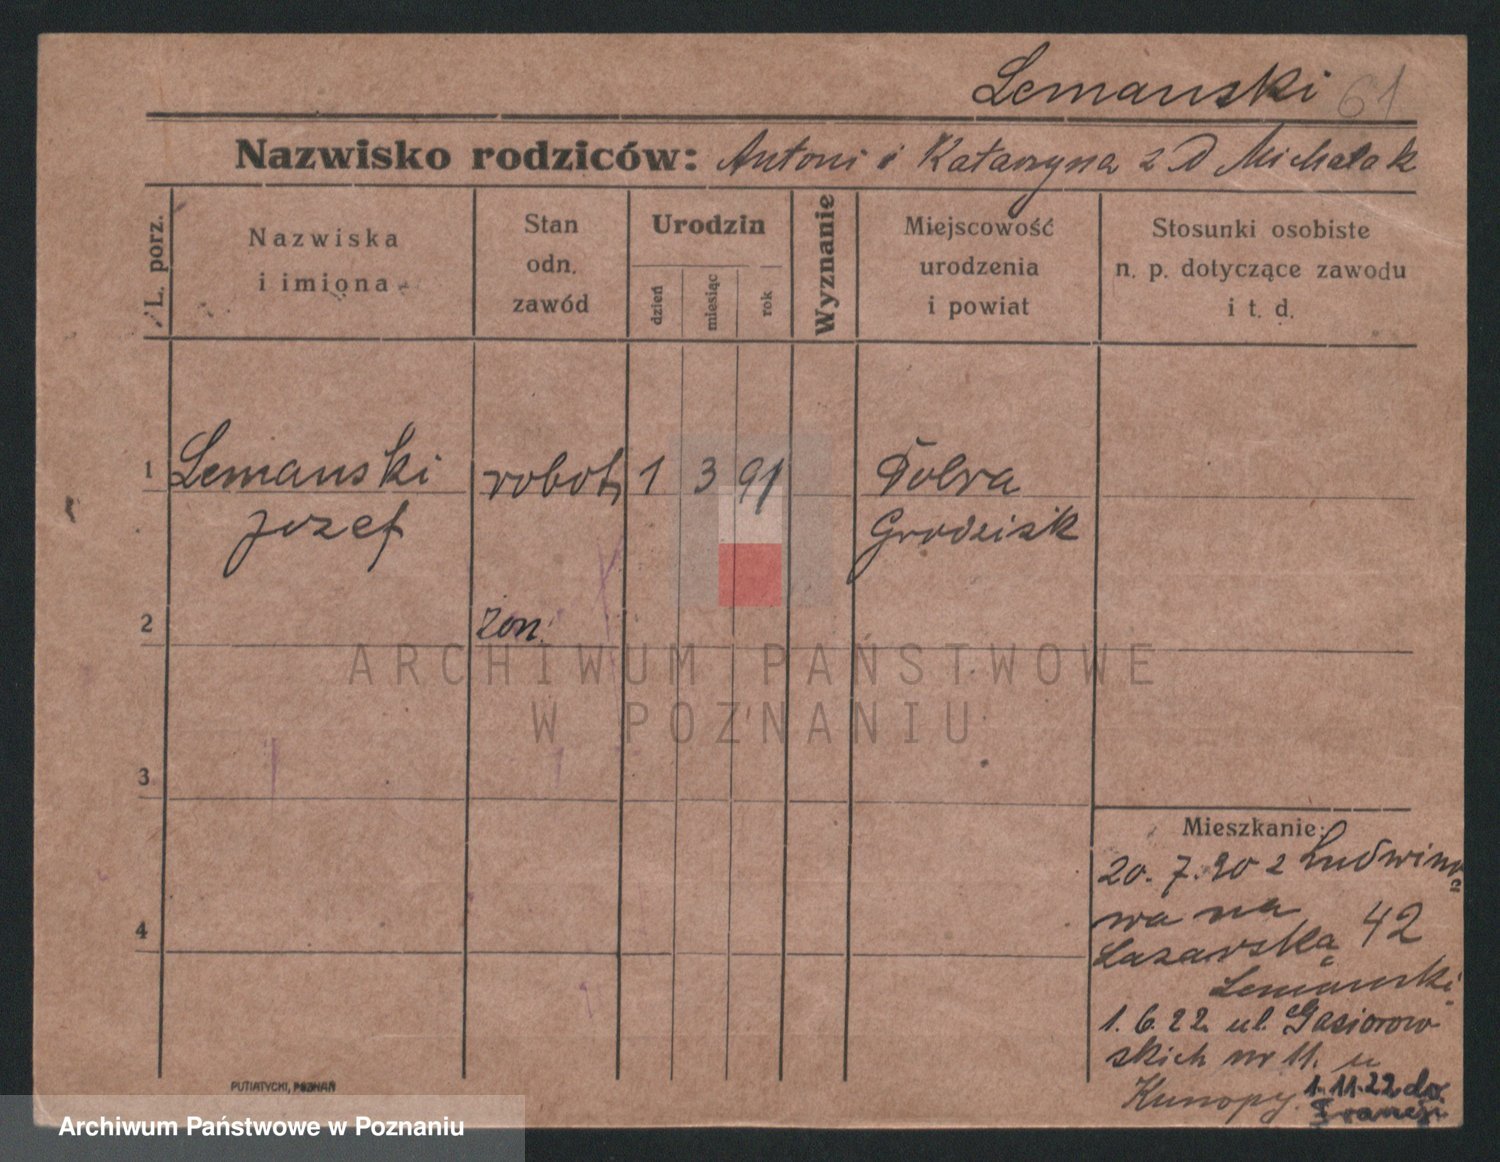 Lemanski 61
Nazwisko rodziców: Antoni i Katarzyna z D Michalak
L. porz.
Nazwiska
i imiona
Stan
odn.
zawód
Urodzin
dzień
miesiąc
rok
Wyznanie
Miejscowość
urodzenia
i powiat
Stosunki osobiste
n. p. dotyczące zawodu
i t. d.
1 Lemanski robotn 1 3 91
Grodzisk
Jozef
2 żon.
3
4
Mieszkanie:
20. 7. 20 z Ludwino
wa na
Lazarską 42
Lemanski
1. 6. 22 ul. Gasiorow
skich nr 11. u
Kunopy 1. 11. 22 do
Francji
PUTIATYCKI, POZNAŃ
ARCHIWUM PAŃSTWOWE
W POZNANIU
Archiwum Państwowe w Poznaniu